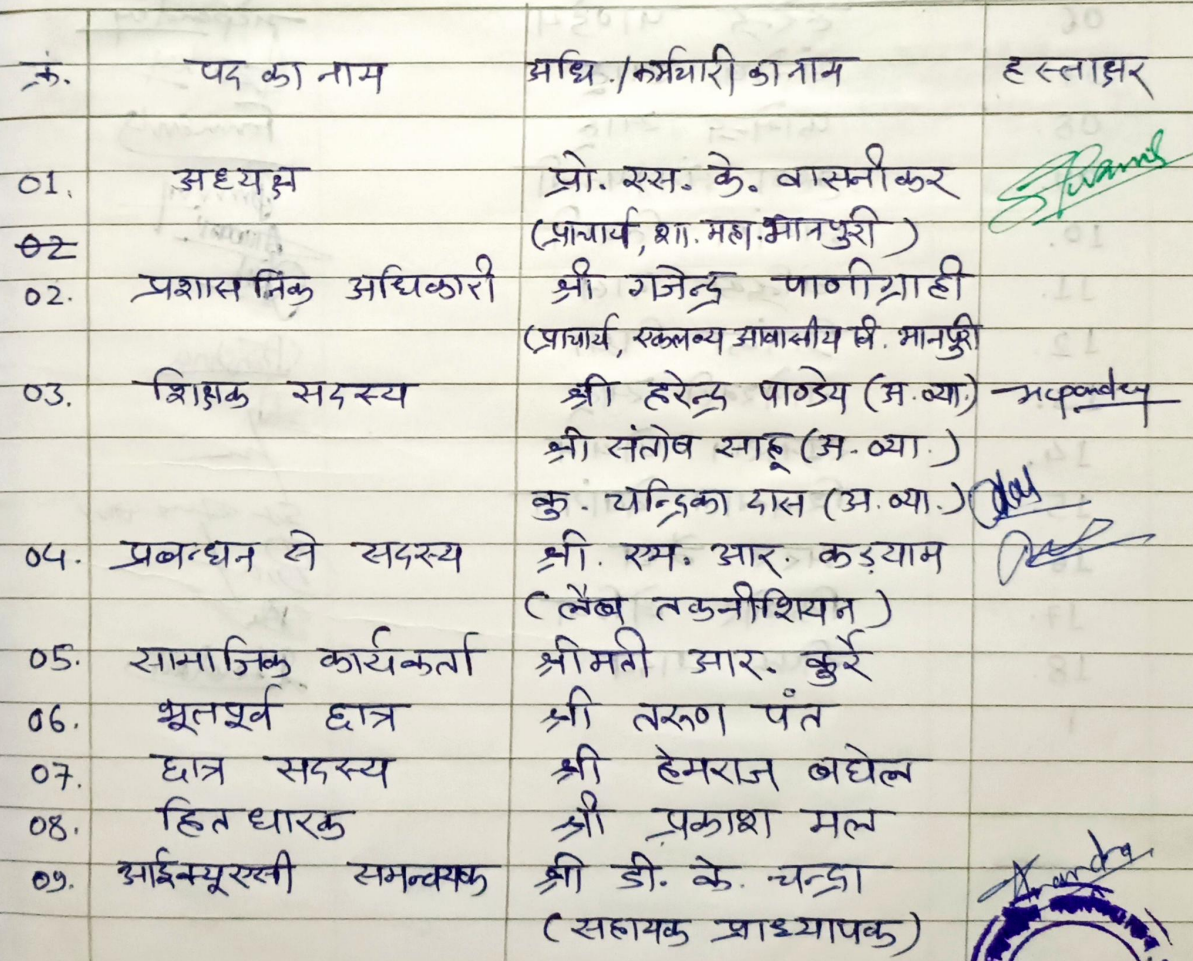 क्रं. पद का नाम अधि./कर्मचारी का नाम हस्ताक्षर
01. अध्यक्ष प्रो. एस. के. वासनीकर
02 (प्राचार्य, शा. महा. भानपुरी)
02. प्रशासनिक अधिकारी श्री गजेन्द्र पाणीग्राही
(प्राचार्य, एकलव्य आवासीय वि. भानपुरी
03. शिक्षक सदस्य श्री हरेन्द्र पाण्डेय (अ.व्या.)
श्री संतोष साहू (अ. व्या.)
कु. चन्द्रिका दास (अ. व्या.)
04. प्रबन्धन से सदस्य श्री. एम. आर. कड़याम
(लैब तकनीशियन)
05. सामाजिक कार्यकर्ता श्रीमती आर. कुर्रे
06. भूतपूर्व छात्र श्री तरूण पंत
07. छात्र सदस्य श्री हेमराज बघेल
08. हितधारक श्री प्रकाश मल
09. आईक्यूएसी समन्वयक श्री डी. के. चन्द्रा
(सहायक प्राध्यापक)